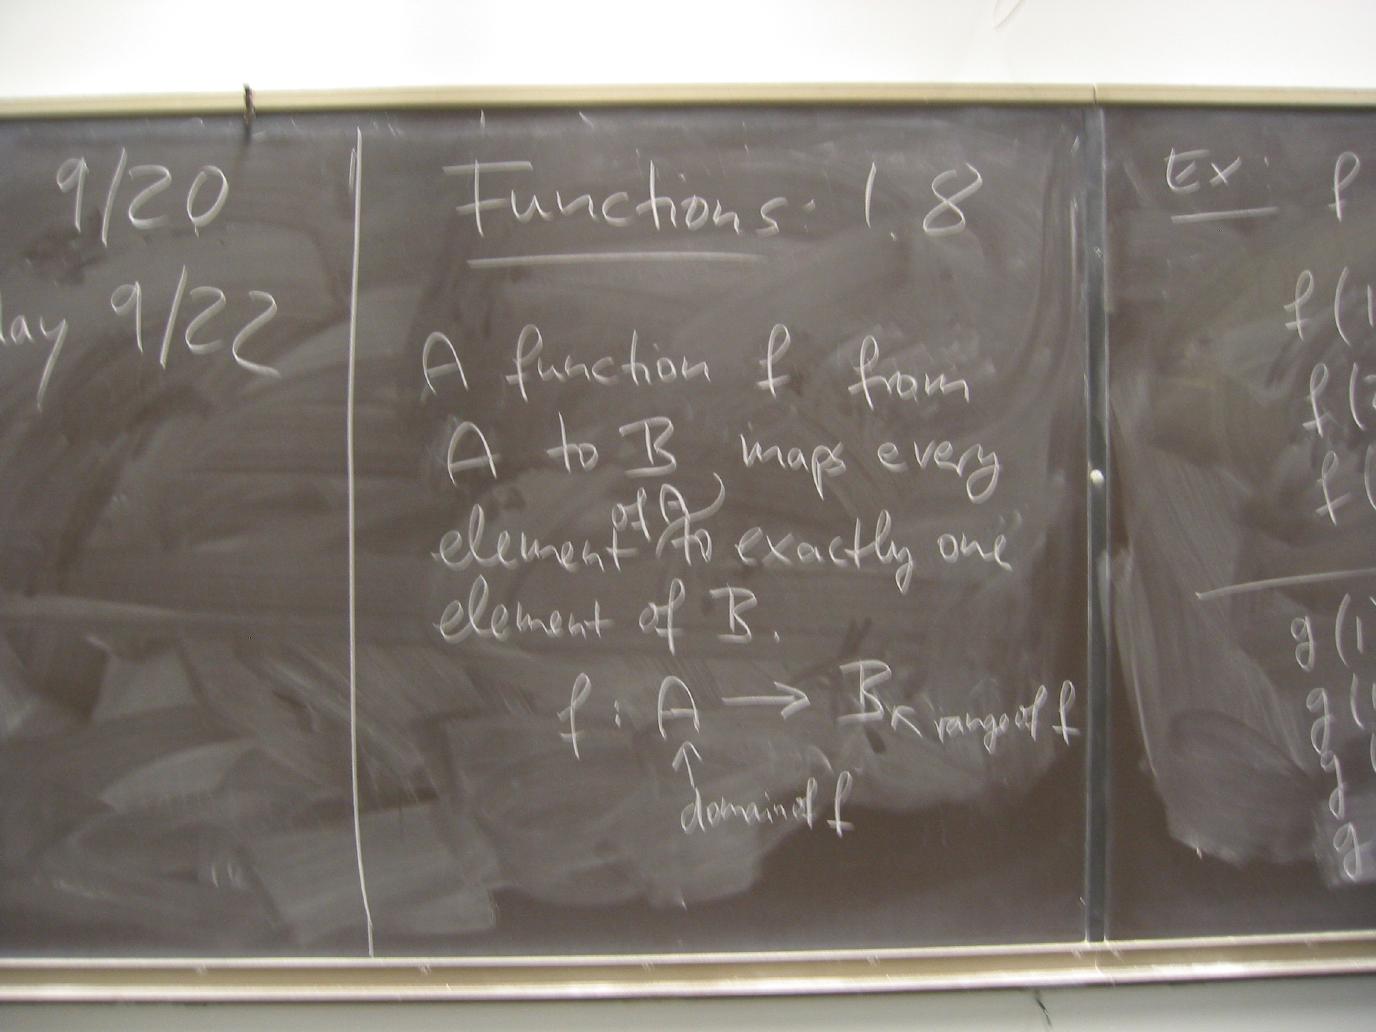 9/20
day 9/22
Functions: 1.8
A function f from
A to B maps every
element of A to exactly one
element of B.
f : A → B ↖ range of f
↑
domain of f
Ex: f
f(1
f(2
f(
g(1
g(1
g(
g